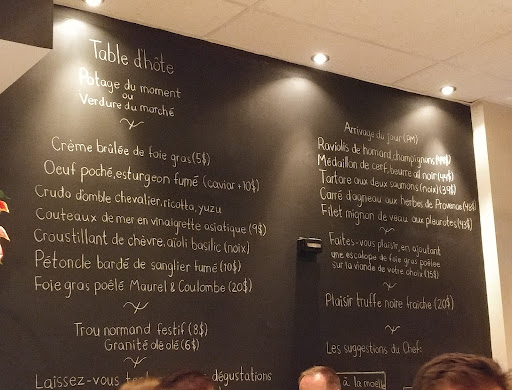 Table d'hôte
Potage du moment
ou
Verdure du marché
Crème brûlée de foie gras (5$)
Oeuf poché, esturgeon fumé (caviar +10$)
Crudo d'omble chevalier, ricotta, yuzu
Couteaux de mer en vinaigrette asiatique (9$)
Croustillant de chèvre, aïoli basilic (noix)
Pétoncle bardé de sanglier fumé (10$)
Foie gras poêlé Maurel & Coulombe (20$)
Trou normand festif (8$)
Granité olé olé (6$)
Laissez-vous
dégustations
Arrivage du jour (PM)
Raviolis de homard, champignons
Médaillon de cerf, beurre ail noir
Tartare aux deux saumons (noix) (39$)
Carré d'agneau aux herbes de Provence
Filet mignon de veau aux pleurotes (43$)
Faites-vous plaisir, en ajoutant
une escalope de foie gras poêlée
sur la viande de votre choix (15$)
Plaisir truffe noire fraîche (20$)
Les suggestions du Chef:
à la moëlle